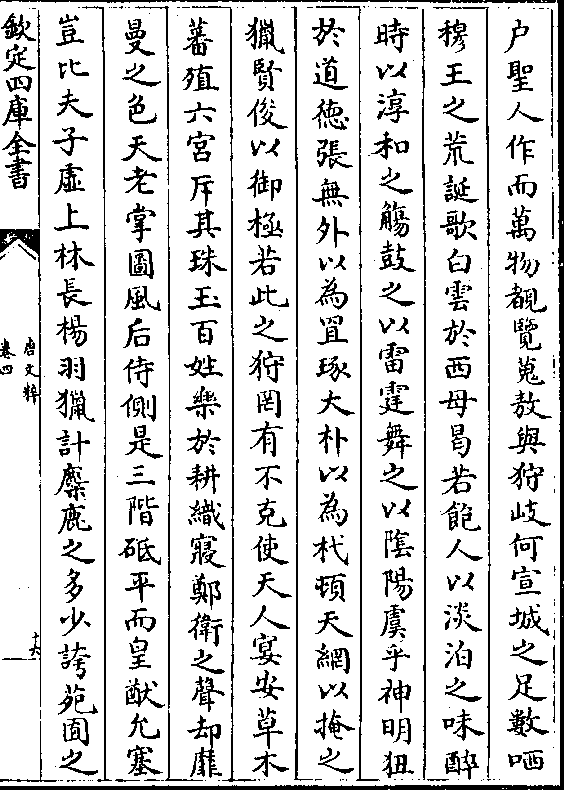 户聖人作而萬物覩覽蒐敖與狩岐何宣城之足數哂
穆王之荒誕歌白雲於西母曷若飽人以淡泊之味醉
時以淳和之觴鼓之以雷霆舞之以陰陽虞乎神明狃
於道德張無外以為罝琢大朴以為杙頓天網以掩之
獵賢俊以御極若此之狩罔有不克使天人宴安草木
蕃殖六宮斥其珠玉百姓樂於耕織寢鄭衛之聲却靡
曼之色天老掌圖風后侍側是三階砥平而皇猷允塞
豈比夫子虛上林長楊羽獵計麋鹿之多少誇苑囿之
欽定四庫全書
唐文粹
卷四
十六